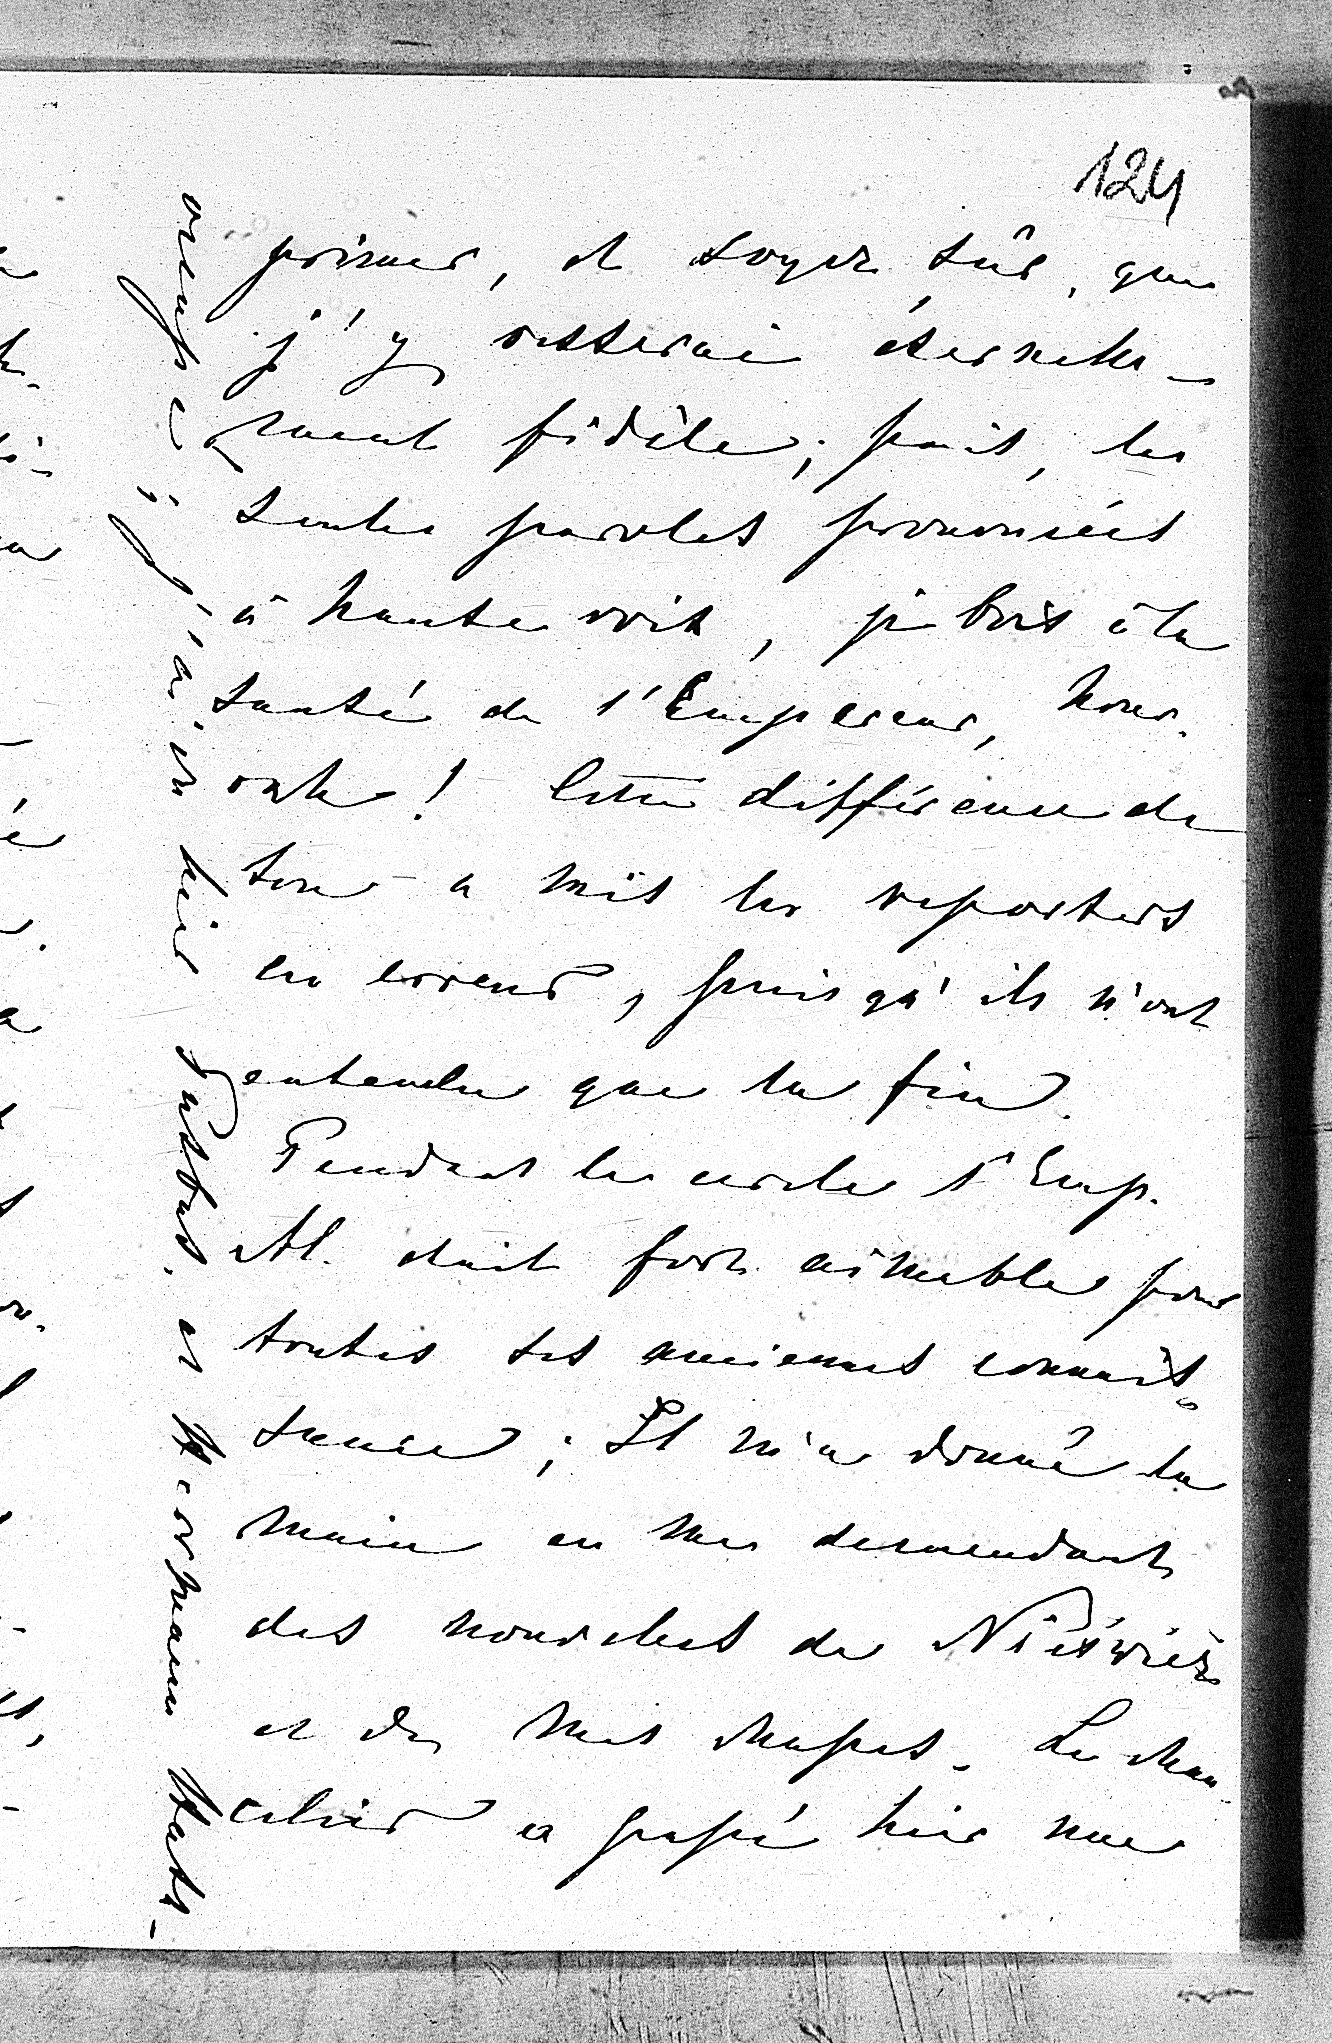 124
primer, et soyez sûr, que
j'y resterai éternelle-
ment fidèle; puis, les
seules paroles prononcées
à haute voix, je bois à la
santé de l'Empereur, hour-
rah! Cette différence de
ton a mis les reporters
en erreur, puisqu'ils n'ont
entendu que la fin.
Pendant le cercle l'Emp.
Al. était fort aimable pour
toutes ses anciennes connais-
sances; Il m'a donné la
main en me demandant
des nouvelles de Nieśwież
et de mes chasses. Le chan-
celier a passé hier une
j'ai vu hier Puttbus. et Hermann Hatz-